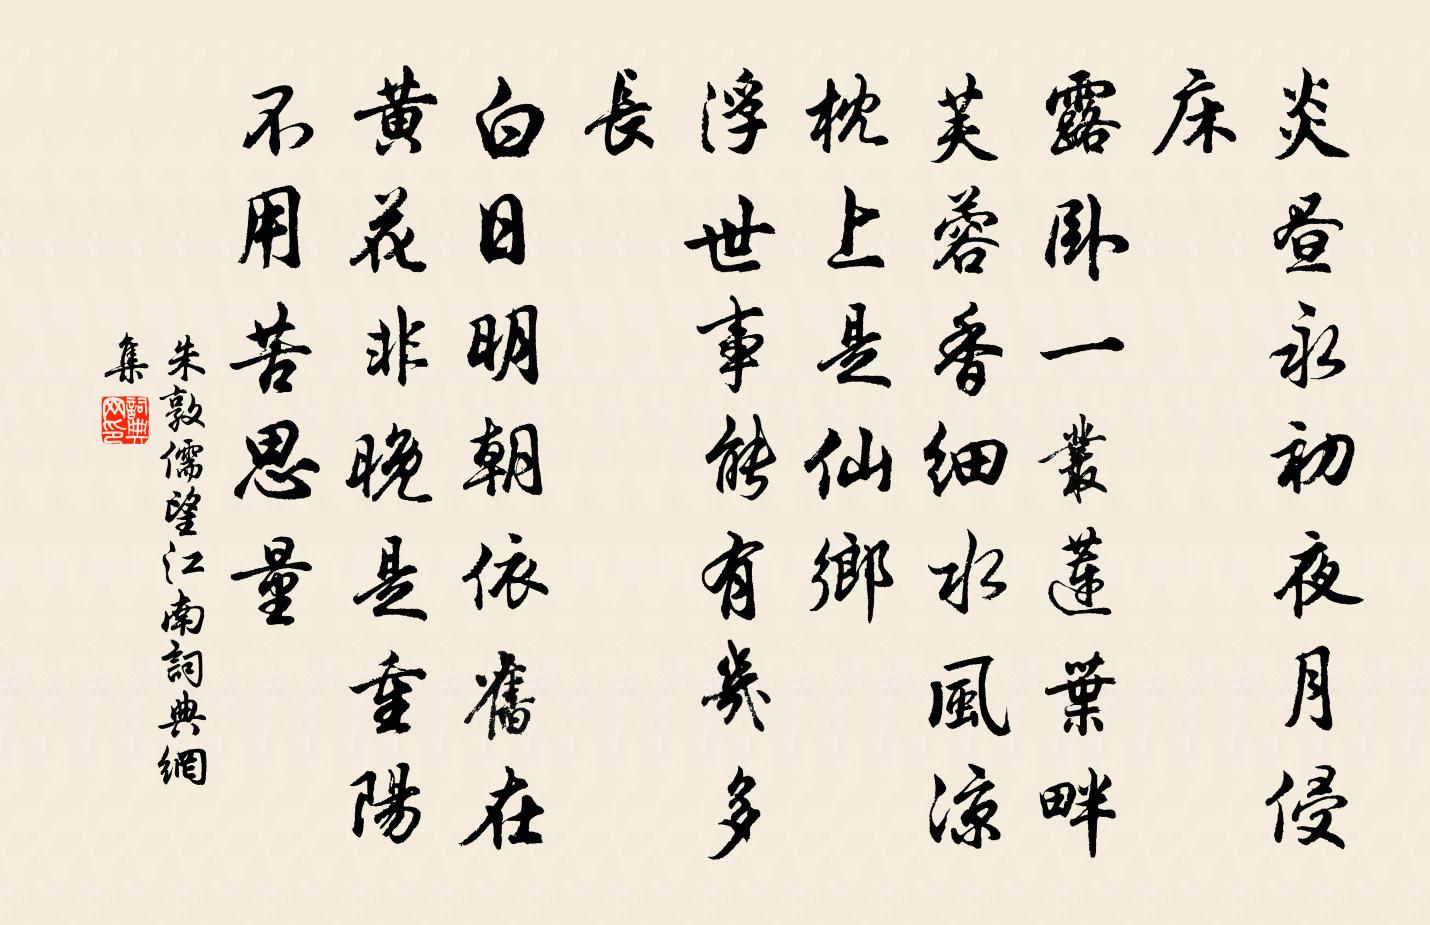 炎昼永初夜月侵
床
露卧一叢蓮葉畔
芙蓉香細水風凉
枕上是仙鄉
浮世事能有幾多
長
白日明朝依舊在
黃花非晚是重陽
不用苦思量
朱敦儒望江南詞典網
集
詞典
网印